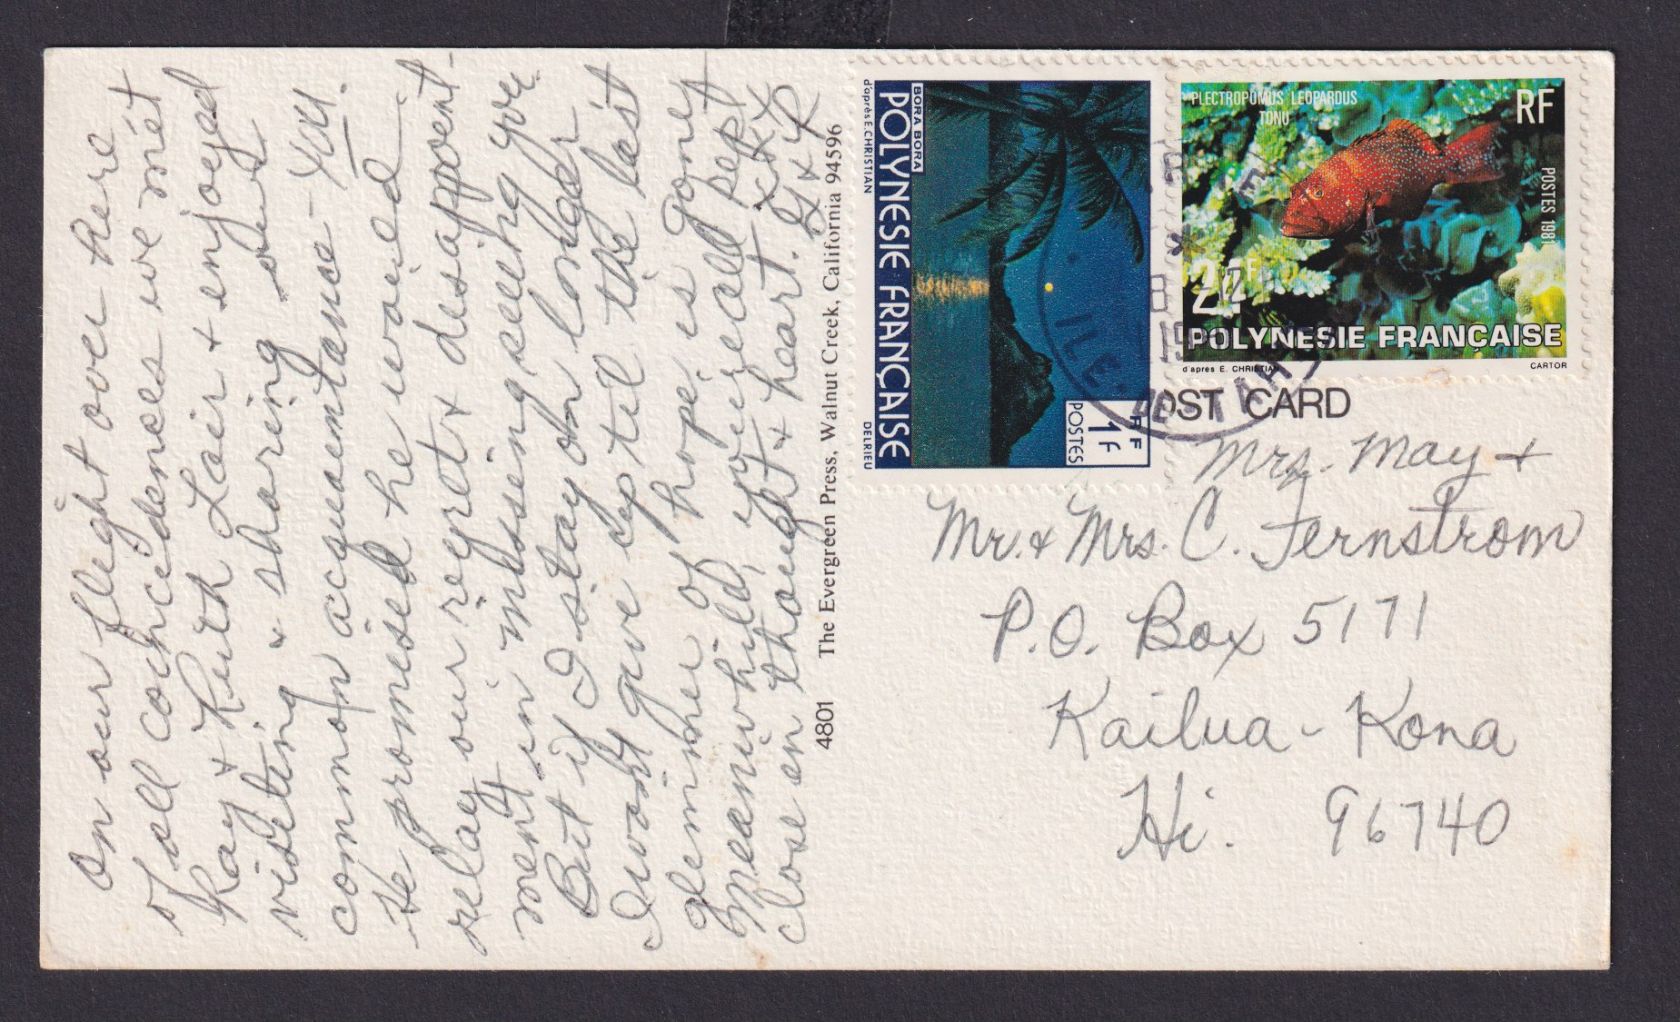 On our flight over here
of all coincedences we met
Ray & Ruth Lair & enjoyed
visiting & sharing our
common acquaintance - YU.
He promised he would
relay our regret & disappoint-
ment in missing seeing you.
But if I stay on longer
I wont give up til the last
glimmer of hope is gone,
Meanwhile, you're all kept
close in thought & heart.
4801 The Evergreen Press, Walnut Creek, California 94596
BORA BORA
d'après E. CHRISTIAN
POLYNESIE FRANÇAISE
DELRIEU
RF
1F
POSTES
PLECTROPOMUS LEOPARDUS
TONU
RF
POSTES 1981
POLYNESIE FRANÇAISE
d'après E. CHRISTIAN
CARTOR
ILE DE TAHITI
POST CARD
Mrs. May &
Mr. & Mrs. C. Fernstrom
P.O. Box 5171
Kailua - Kona
Hi. 96740